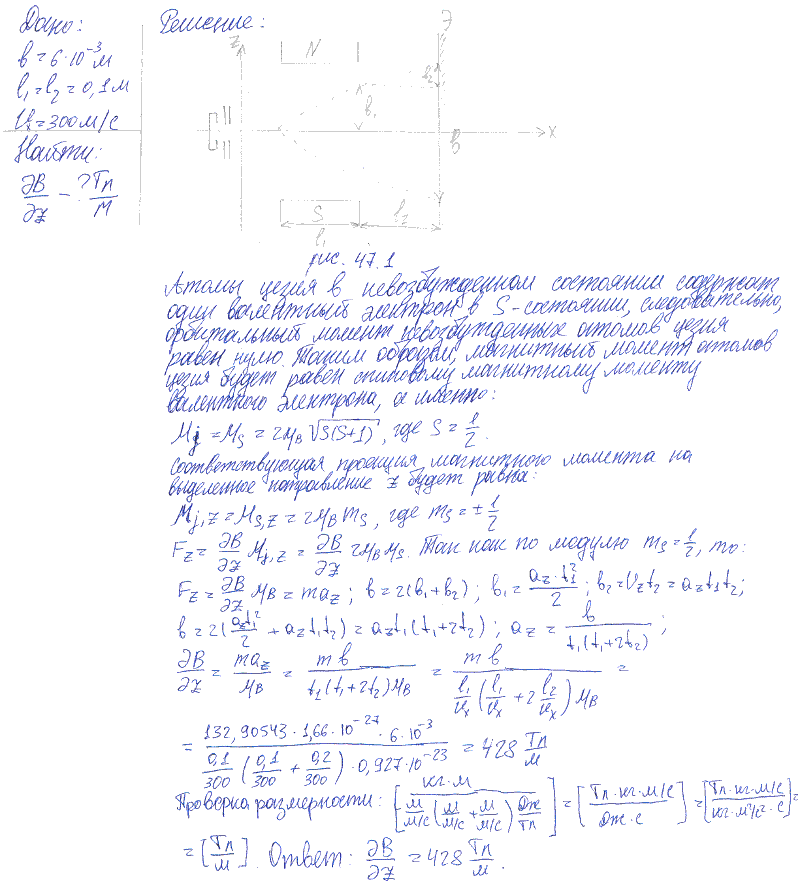 Дано:
b = 6·10⁻³ м
l₁ = l₂ = 0,1 м
Vₓ = 300 м/с
Найти:
∂B/∂z - ? Тл/м
Решение:
Z N Э
b₂
b₁
x
B
S l₂
l₁
рис. 47.1
Атомы цезия в невозбужденном состоянии содержат
один валентный электрон в S-состоянии, следовательно,
орбитальный момент невозбужденных атомов цезия
равен нулю. Таким образом, магнитный момент атомов
цезия будет равен спиновому магнитному моменту
валентного электрона, а именно:
Mj = Ms = 2μB √S(S+1), где S = 1/2.
Соответствующая проекция магнитного момента на
выделенное направление z будет равна:
Mj,z = Ms,z = 2μB ms, где ms = ± 1/2
Fz = ∂B/∂z Mj,z = ∂B/∂z 2μB ms. Так как по модулю ms = 1/2, то:
Fz = ∂B/∂z μB = maz; b = 2(b₁+b₂); b₁ = az·t₁²/2; b₂ = Vz t₂ = az t₁ t₂;
b = 2(az t₁²/2 + az t₁ t₂) = az t₁(t₁+2t₂); az = b/t₁(t₁+2t₂);
∂B/∂z = maz/μB = mb/t₁(t₁+2t₂)μB = mb/l₁/Vx (l₁/Vx + 2 l₂/Vx) μB =
= 132,90543·1,66·10⁻²⁷·6·10⁻³/0,1/300 (0,1/300 + 0,2/300)·0,927·10⁻²³ = 428 Тл/м
Проверка размерности: [кг·м/м/м/с (м/м/с + м/м/с) Дж/Тл] = [Тл·кг·м/с/Дж·с] = [Тл·кг·м/с/кг·м²/с²·с] =
= [Тл/м]. Ответ: ∂B/∂z = 428 Тл/м.